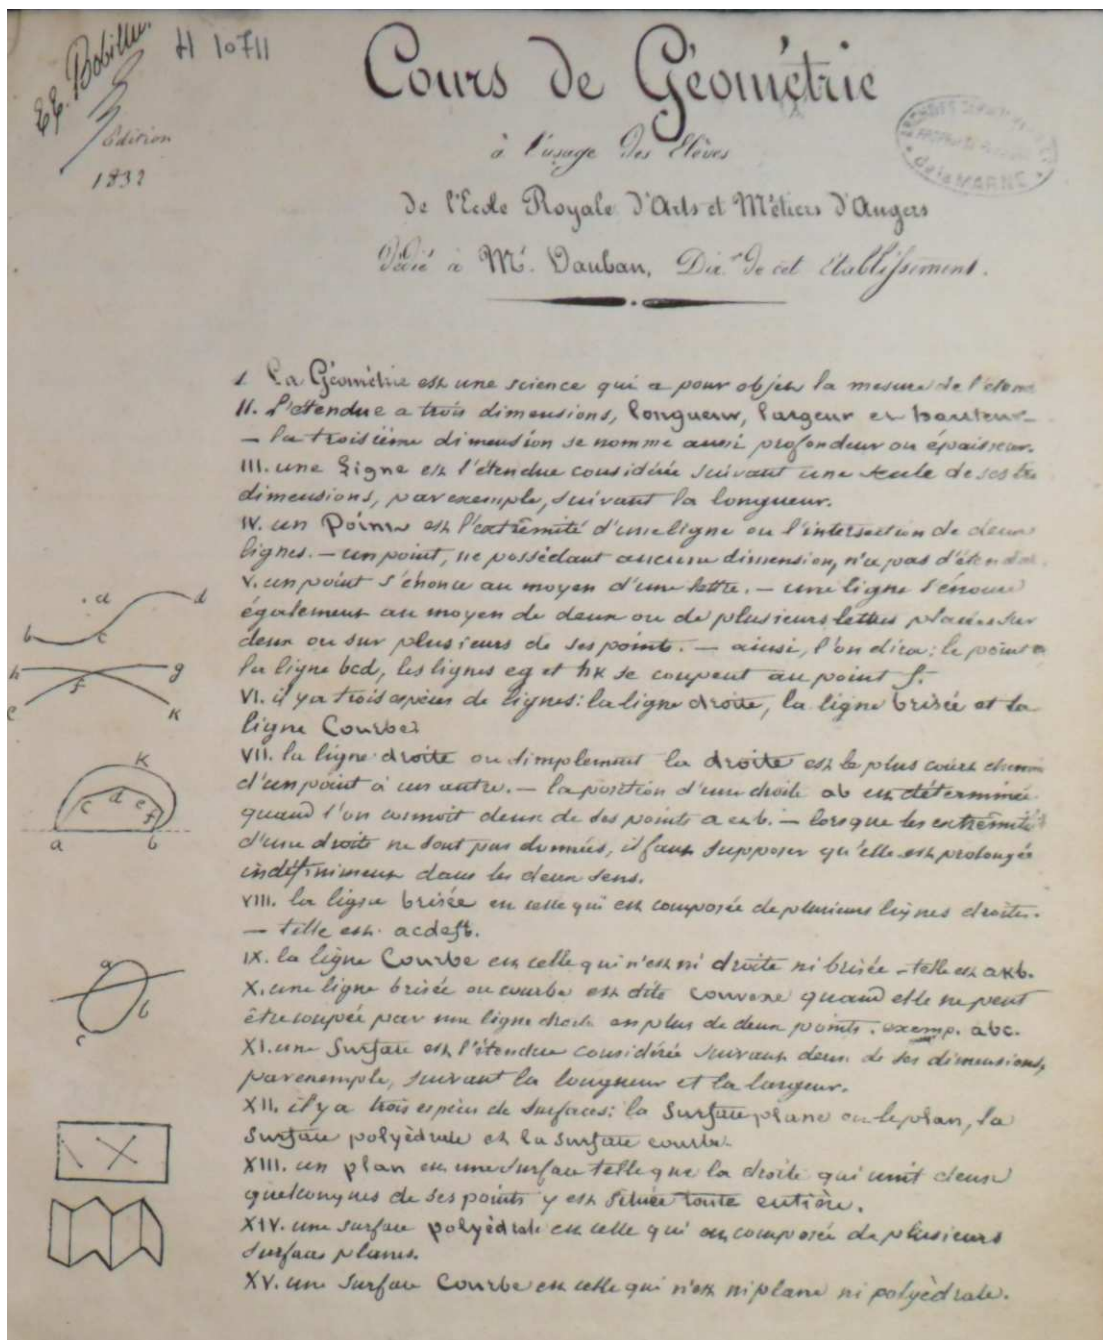 EE. Bobillier
H 10711
Edition
1832
Cours de Géométrie
à l'usage des Elèves
de l'Ecole Royale d'Arts et Métiers d'Angers
Dédié à Mr. Dauban, Dir.r de cet établissement.
ARCHIVES
de la MARNE
I. La Géométrie est une science qui a pour objet la mesure de l'éten
II. L'étendue a trois dimensions, longueur, largeur et hauteur
— la troisième dimension se nomme aussi profondeur ou épaisseur.
III. une Ligne est l'étendue considérée suivant une seule de ses tro
dimensions, par exemple, suivant la longueur.
IV. un Point est l'extrêmité d'une ligne ou l'intersection de deux
lignes. — un point, ne possédant aucune dimension, n'a pas d'étendue.
V. un point s'énonce au moyen d'une lettre. — une ligne s'énonce
également au moyen de deux ou de plusieurs lettres placées sur
deux ou sur plusieurs de ses points. — ainsi, l'on dira: le point a
la ligne bcd, les lignes eg et hk se coupent au point f.
VI. il y a trois espèces de lignes: la ligne droite, la ligne brisée et la
ligne Courbe.
VII. la ligne droite ou simplement la droite est le plus court chemin
d'un point à un autre. — la position d'une droite ab est déterminée
quand l'on connoit deux de ses points a et b. — lorsque les extrêmités
d'une droite ne sont pas données, il faut supposer qu'elle est prolongée
indéfiniment dans les deux sens.
VIII. la ligne brisée est celle qui est composée de plusieurs lignes droites.
— telle est acdefb.
IX. la ligne Courbe est celle qui n'est ni droite ni brisée — telle est akb.
X. une ligne brisée ou courbe est dite convexe quand elle ne peut
être coupée par une ligne droite en plus de deux points. exemp. abc.
XI. une Surface est l'étendue considérée suivant deux de ses dimensions,
par exemple, suivant la longueur et la largeur.
XII. il y a trois espèces de surfaces: la surface plane ou le plan, la
surface polyèdrale et la surface courbe.
XIII. un plan est une surface telle que la droite qui unit deux
quelconques de ses points y est située toute entière.
XIV. une surface polyèdrale est celle qui est composée de plusieurs
surfaces planes.
XV. une surface Courbe est celle qui n'est ni plane ni polyèdrale.
a
b c d
h f g
e k
k
c d e f
a b
a
b
c